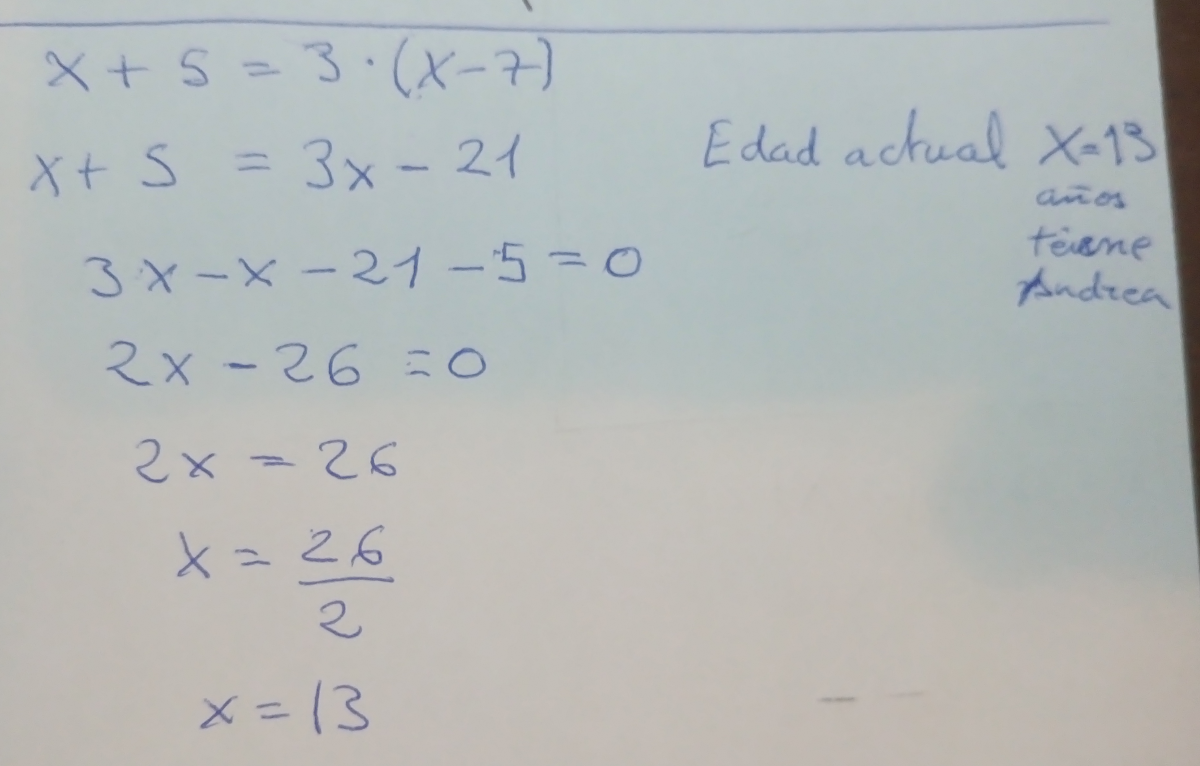 x + 5 = 3 · (x - 7)
x + 5 = 3x - 21
3x - x - 21 - 5 = 0
2x - 26 = 0
2x = 26
x = 26/2
x = 13
Edad actual x = 13
años
teiene
Andrea